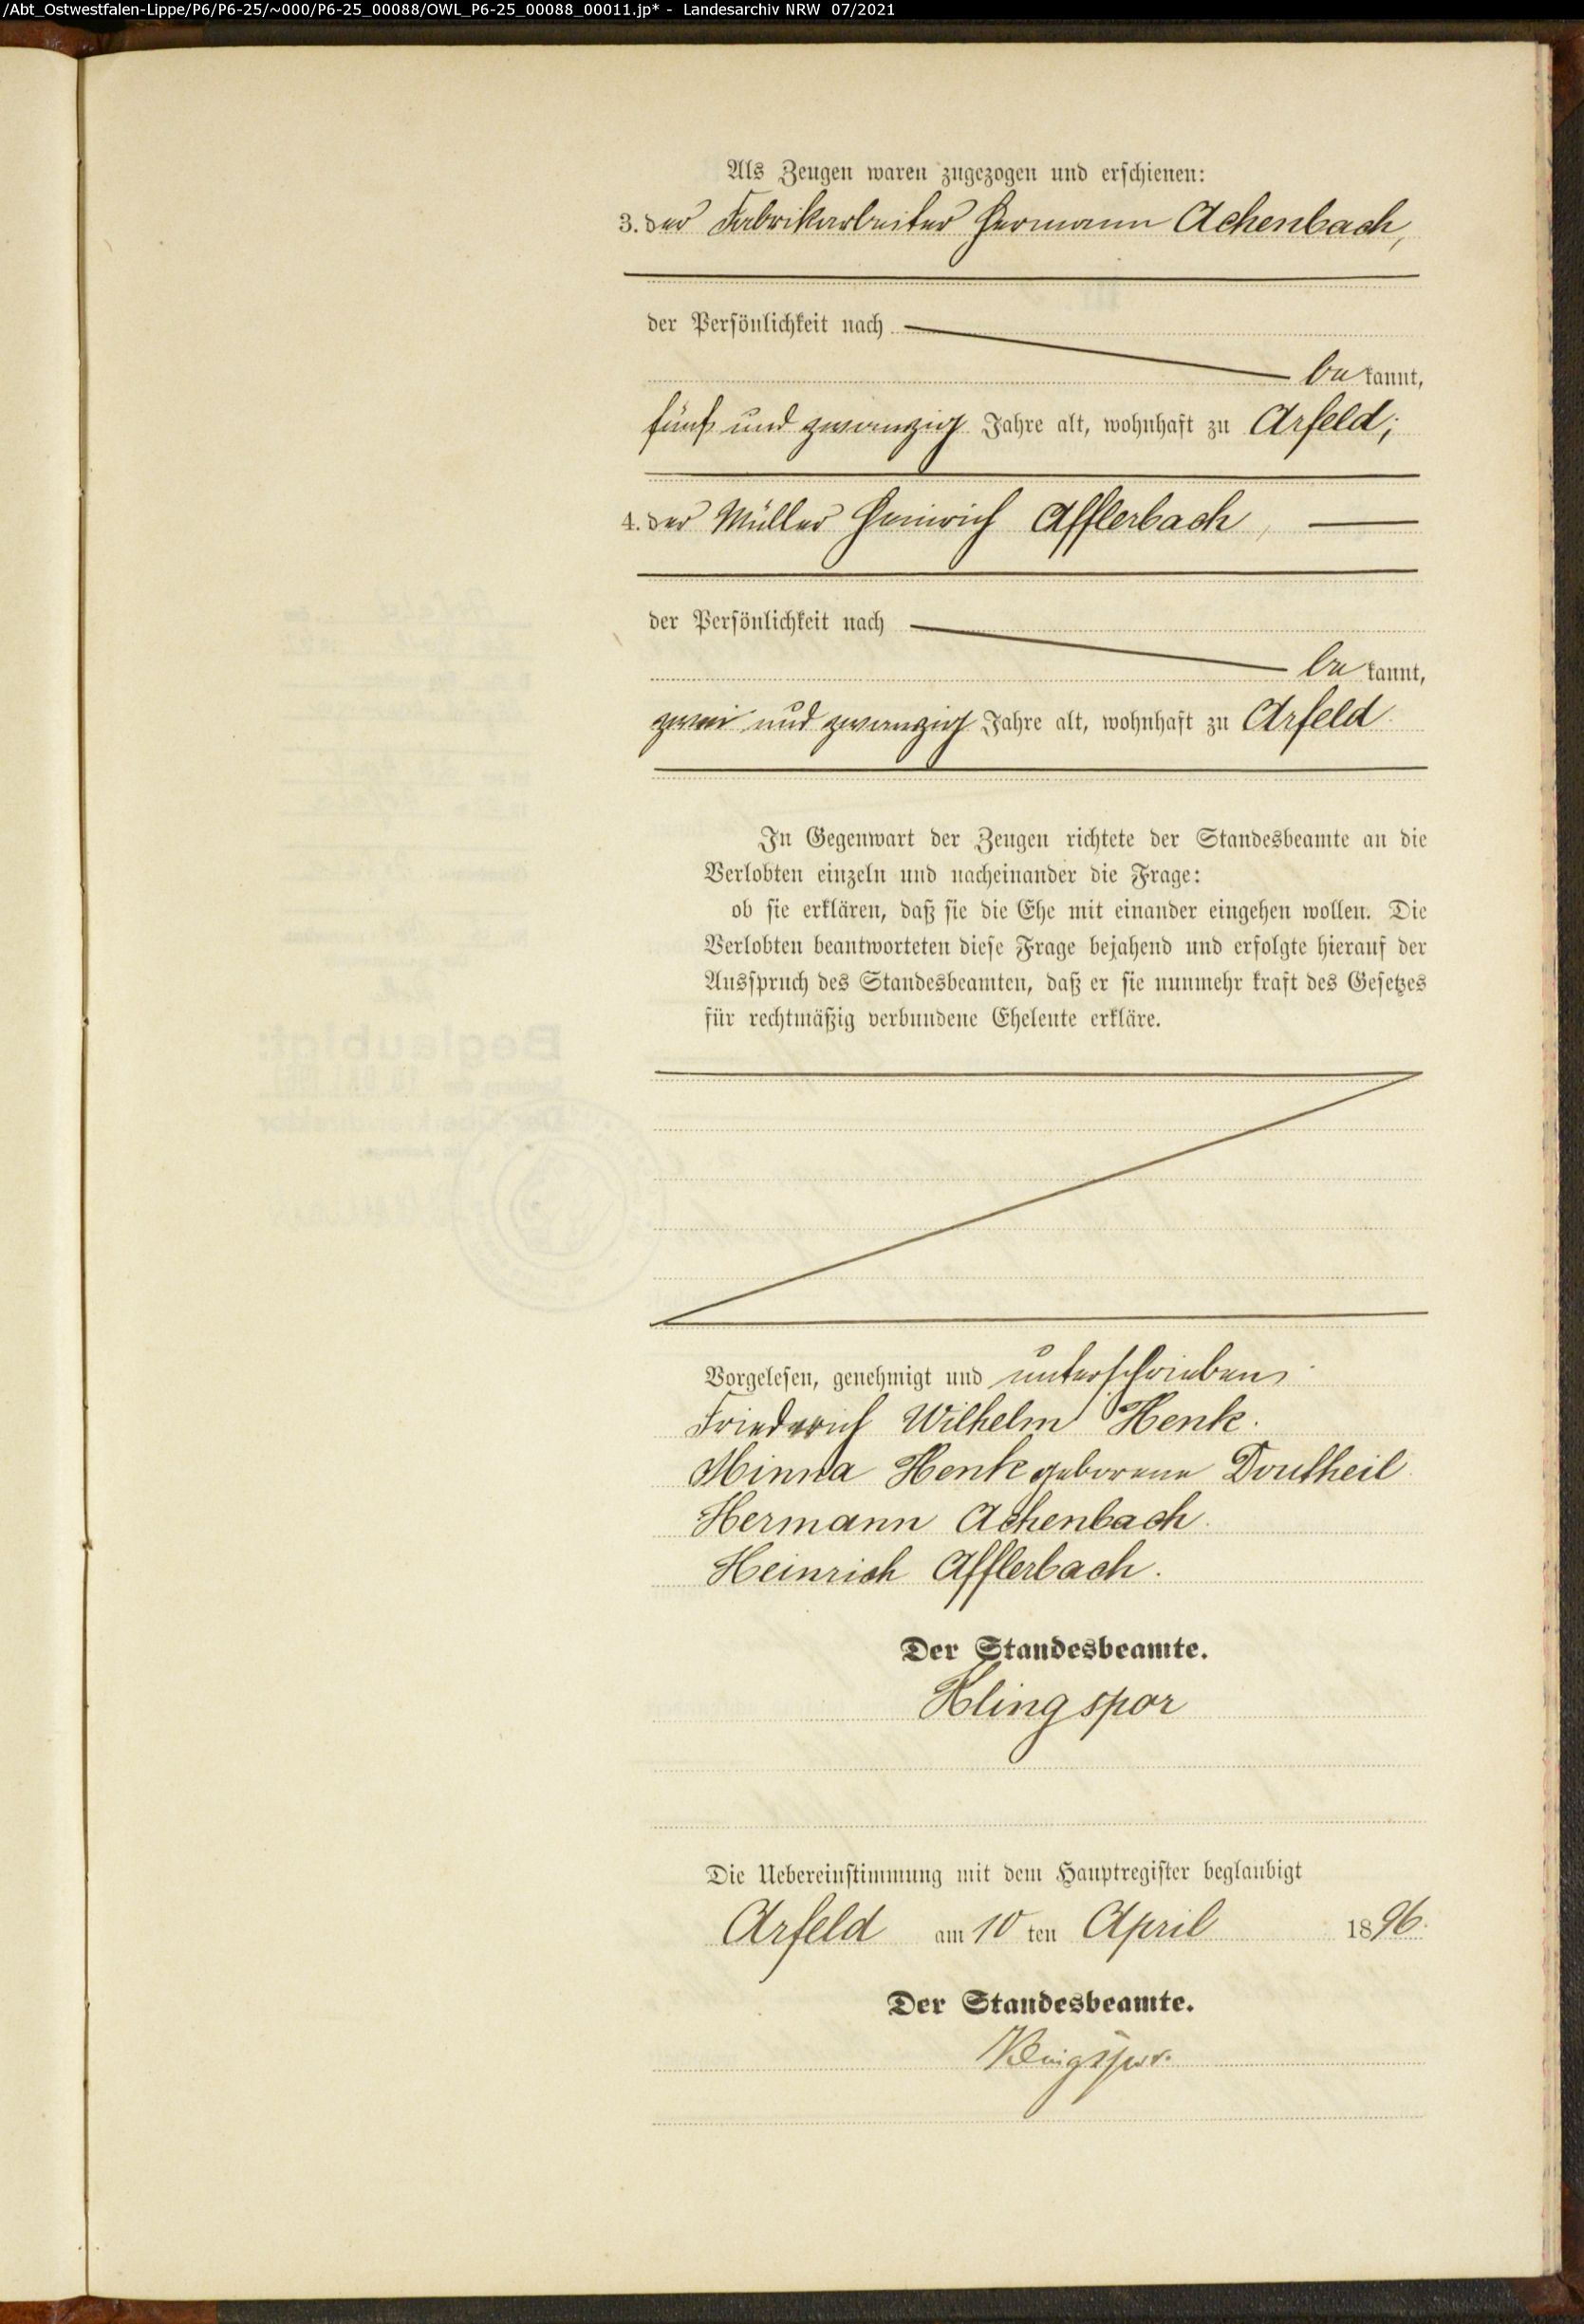 /Abt_Ostwestfalen-Lippe/P6/P6-25/~000/P6-25_00088/OWL_P6-25_00088_00011.jp* - Landesarchiv NRW 07/2021
Als Zeugen waren zugezogen und erschienen:
3. der Fabrikarbeiter Hermann Achenbach,
der Persönlichkeit nach
be kannt,
fünf und zwanzig Jahre alt, wohnhaft zu Arfeld;
4. der Müller Heinrich Afflerbach,
der Persönlichkeit nach
be kannt,
zwei und zwanzig Jahre alt, wohnhaft zu Arfeld
In Gegenwart der Zeugen richtete der Standesbeamte an die
Verlobten einzeln und nacheinander die Frage:
ob sie erklären, daß sie die Ehe mit einander eingehen wollen. Die
Verlobten beantworteten diese Frage bejahend und erfolgte hierauf der
Ausspruch des Standesbeamten, daß er sie nunmehr kraft des Gesetzes
für rechtmäßig verbundene Eheleute erkläre.
Vorgelesen, genehmigt und unterschrieben
Friederich Wilhelm Henk.
Minna Henk geborene Doutheil
Hermann Achenbach.
Heinrich Afflerbach.
Der Standesbeamte.
Klingspor
Die Uebereinstimmung mit dem Hauptregister beglaubigt
Arfeld am 10 ten April 1896.
Der Standesbeamte.
Klingspor.